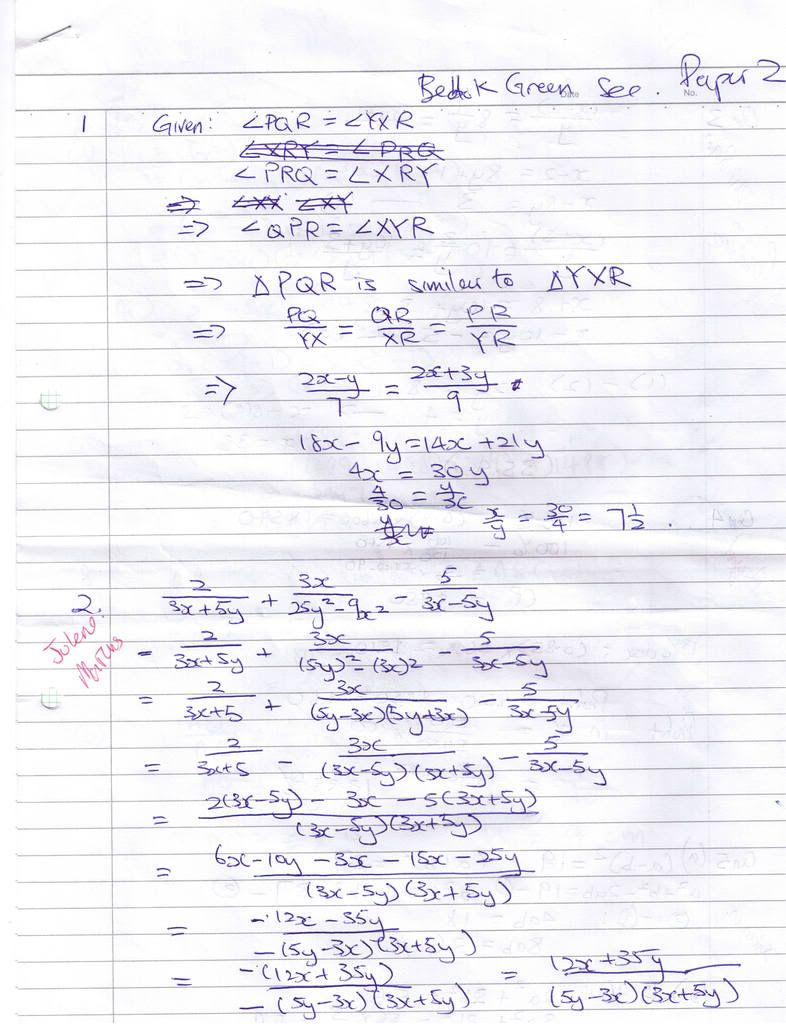 Bedok Green Sec. Paper 2
Date No.
1 Given: ∠PQR = ∠YXR
∠XRY = ∠PRQ
∠PRQ = ∠XRY
⇒ ∠XX ∠XY
⇒ ∠QPR = ∠XYR
⇒ ΔPQR is similar to ΔYXR
⇒ PQ/YX = QR/XR = PR/YR
⇒ (2x-y)/7 = (2x+3y)/9
18x - 9y = 14x + 21y
4x = 30y
4/30 = y/x
y/x = x/y = 30/4 = 7 1/2 .
2. 2/(3x+5y) + 3x/(25y²-9x²) - 5/(3x-5y)
Jolene
Maths
= 2/(3x+5y) + 3x/((5y)²-(3x)²) - 5/(3x-5y)
= 2/(3x+5) + 3x/((5y-3x)(5y+3x)) - 5/(3x-5y)
= 2/(3x+5) - 3x/((3x-5y)(3x+5y)) - 5/(3x-5y)
= (2(3x-5y) - 3x - 5(3x+5y))/((3x-5y)(3x+5y))
= (6x-10y - 3x - 15x - 25y)/((3x-5y)(3x+5y))
= (-12x - 35y)/(-(5y-3x)(3x+5y))
= (-(12x+35y))/(-(5y-3x)(3x+5y)) = (12x+35y)/((5y-3x)(3x+5y))